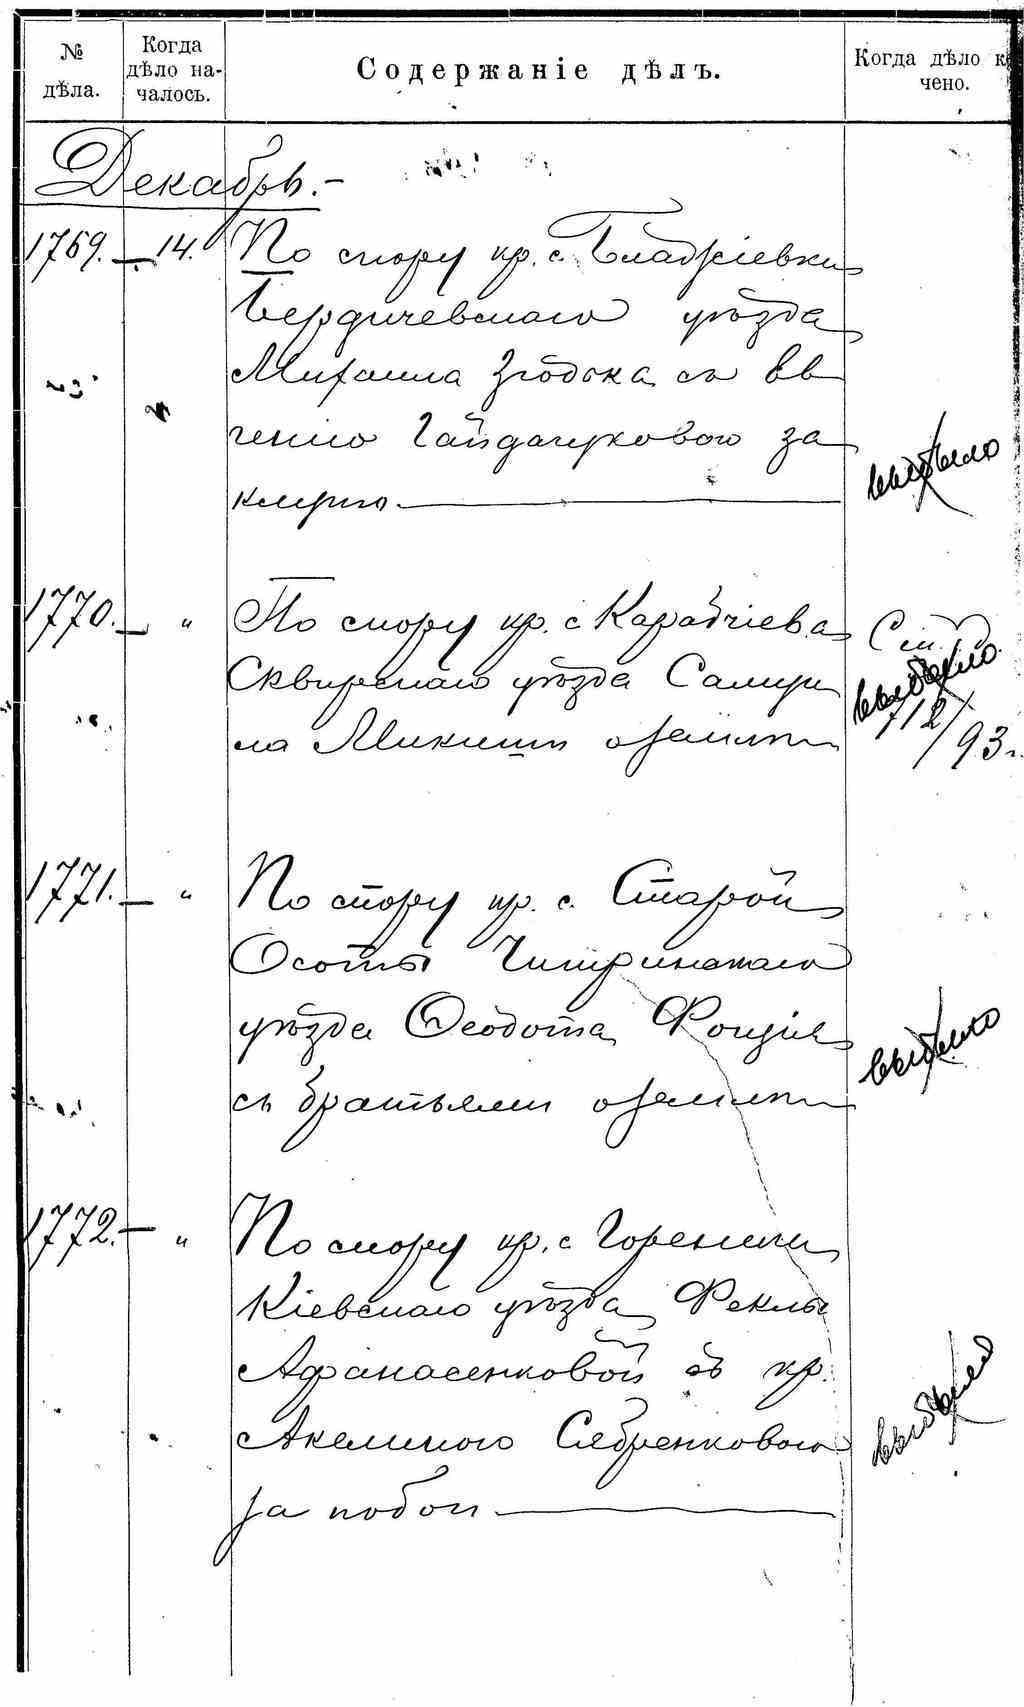 № дѣла.
Когда дѣло на-чалось.
Содержаніе дѣлъ.
Когда дѣло к
чено.
Декабрь.-
1769. — 14. По спору кр. с.
Бердичевскаго уѣзда
Михаила Згодька съ Ев
геніею Гайдачуковою за
клуню
1770. — " По спору кр. с. Карабчіева
Сквирскаго уѣзда Самуи
ла Микиты о землѣ
См.
выбыло
712/93 г.
1771. — " По спору кр. с. Старой
Осоты Чигиринскаго
уѣзда Ѳеодота
съ братьями о землѣ
выбыло
1772. — " По спору кр. с. Гореничи
Кіевскаго уѣзда Феклы
Афанасенковой съ кр.
Акелиною Сябренковою
за побои
выбыло